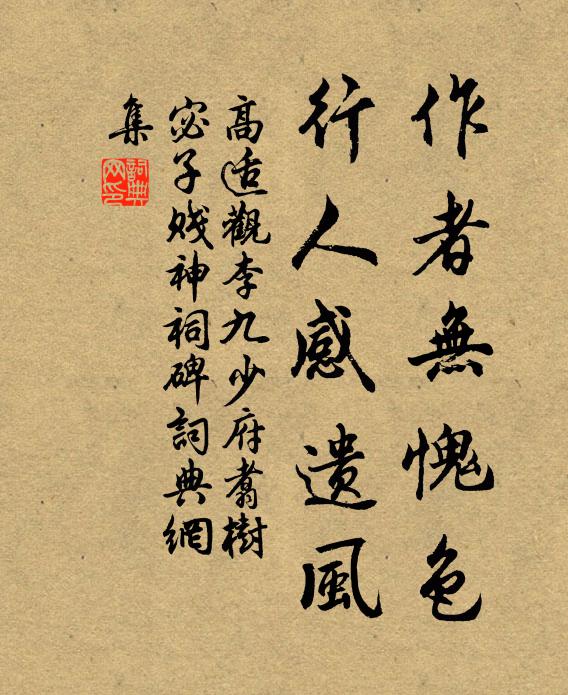 作者無愧色
行人感遺風
高适觀李九少府翥樹
宓子賤神祠碑詞典網
集
詞典網印